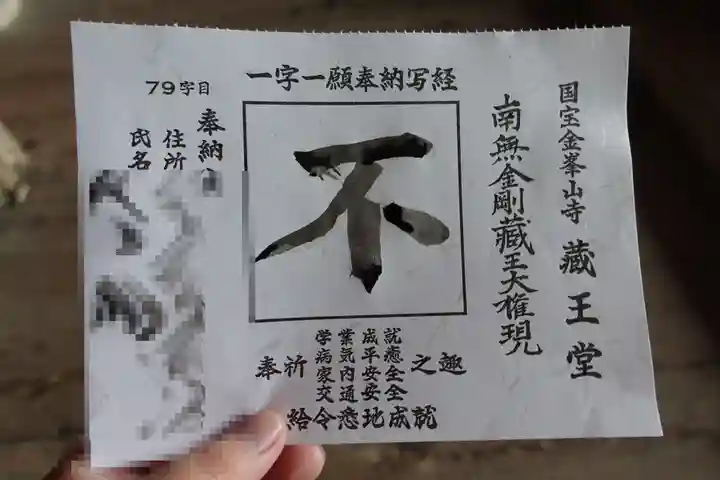 国宝金峯山寺 藏王堂
南無金剛藏王大権現
一字一願奉納写経
不
79字目
奉納
住所
氏名
奉祈
学業成就
病気平癒
家内安全
交通安全
之趣
給令悉地成就